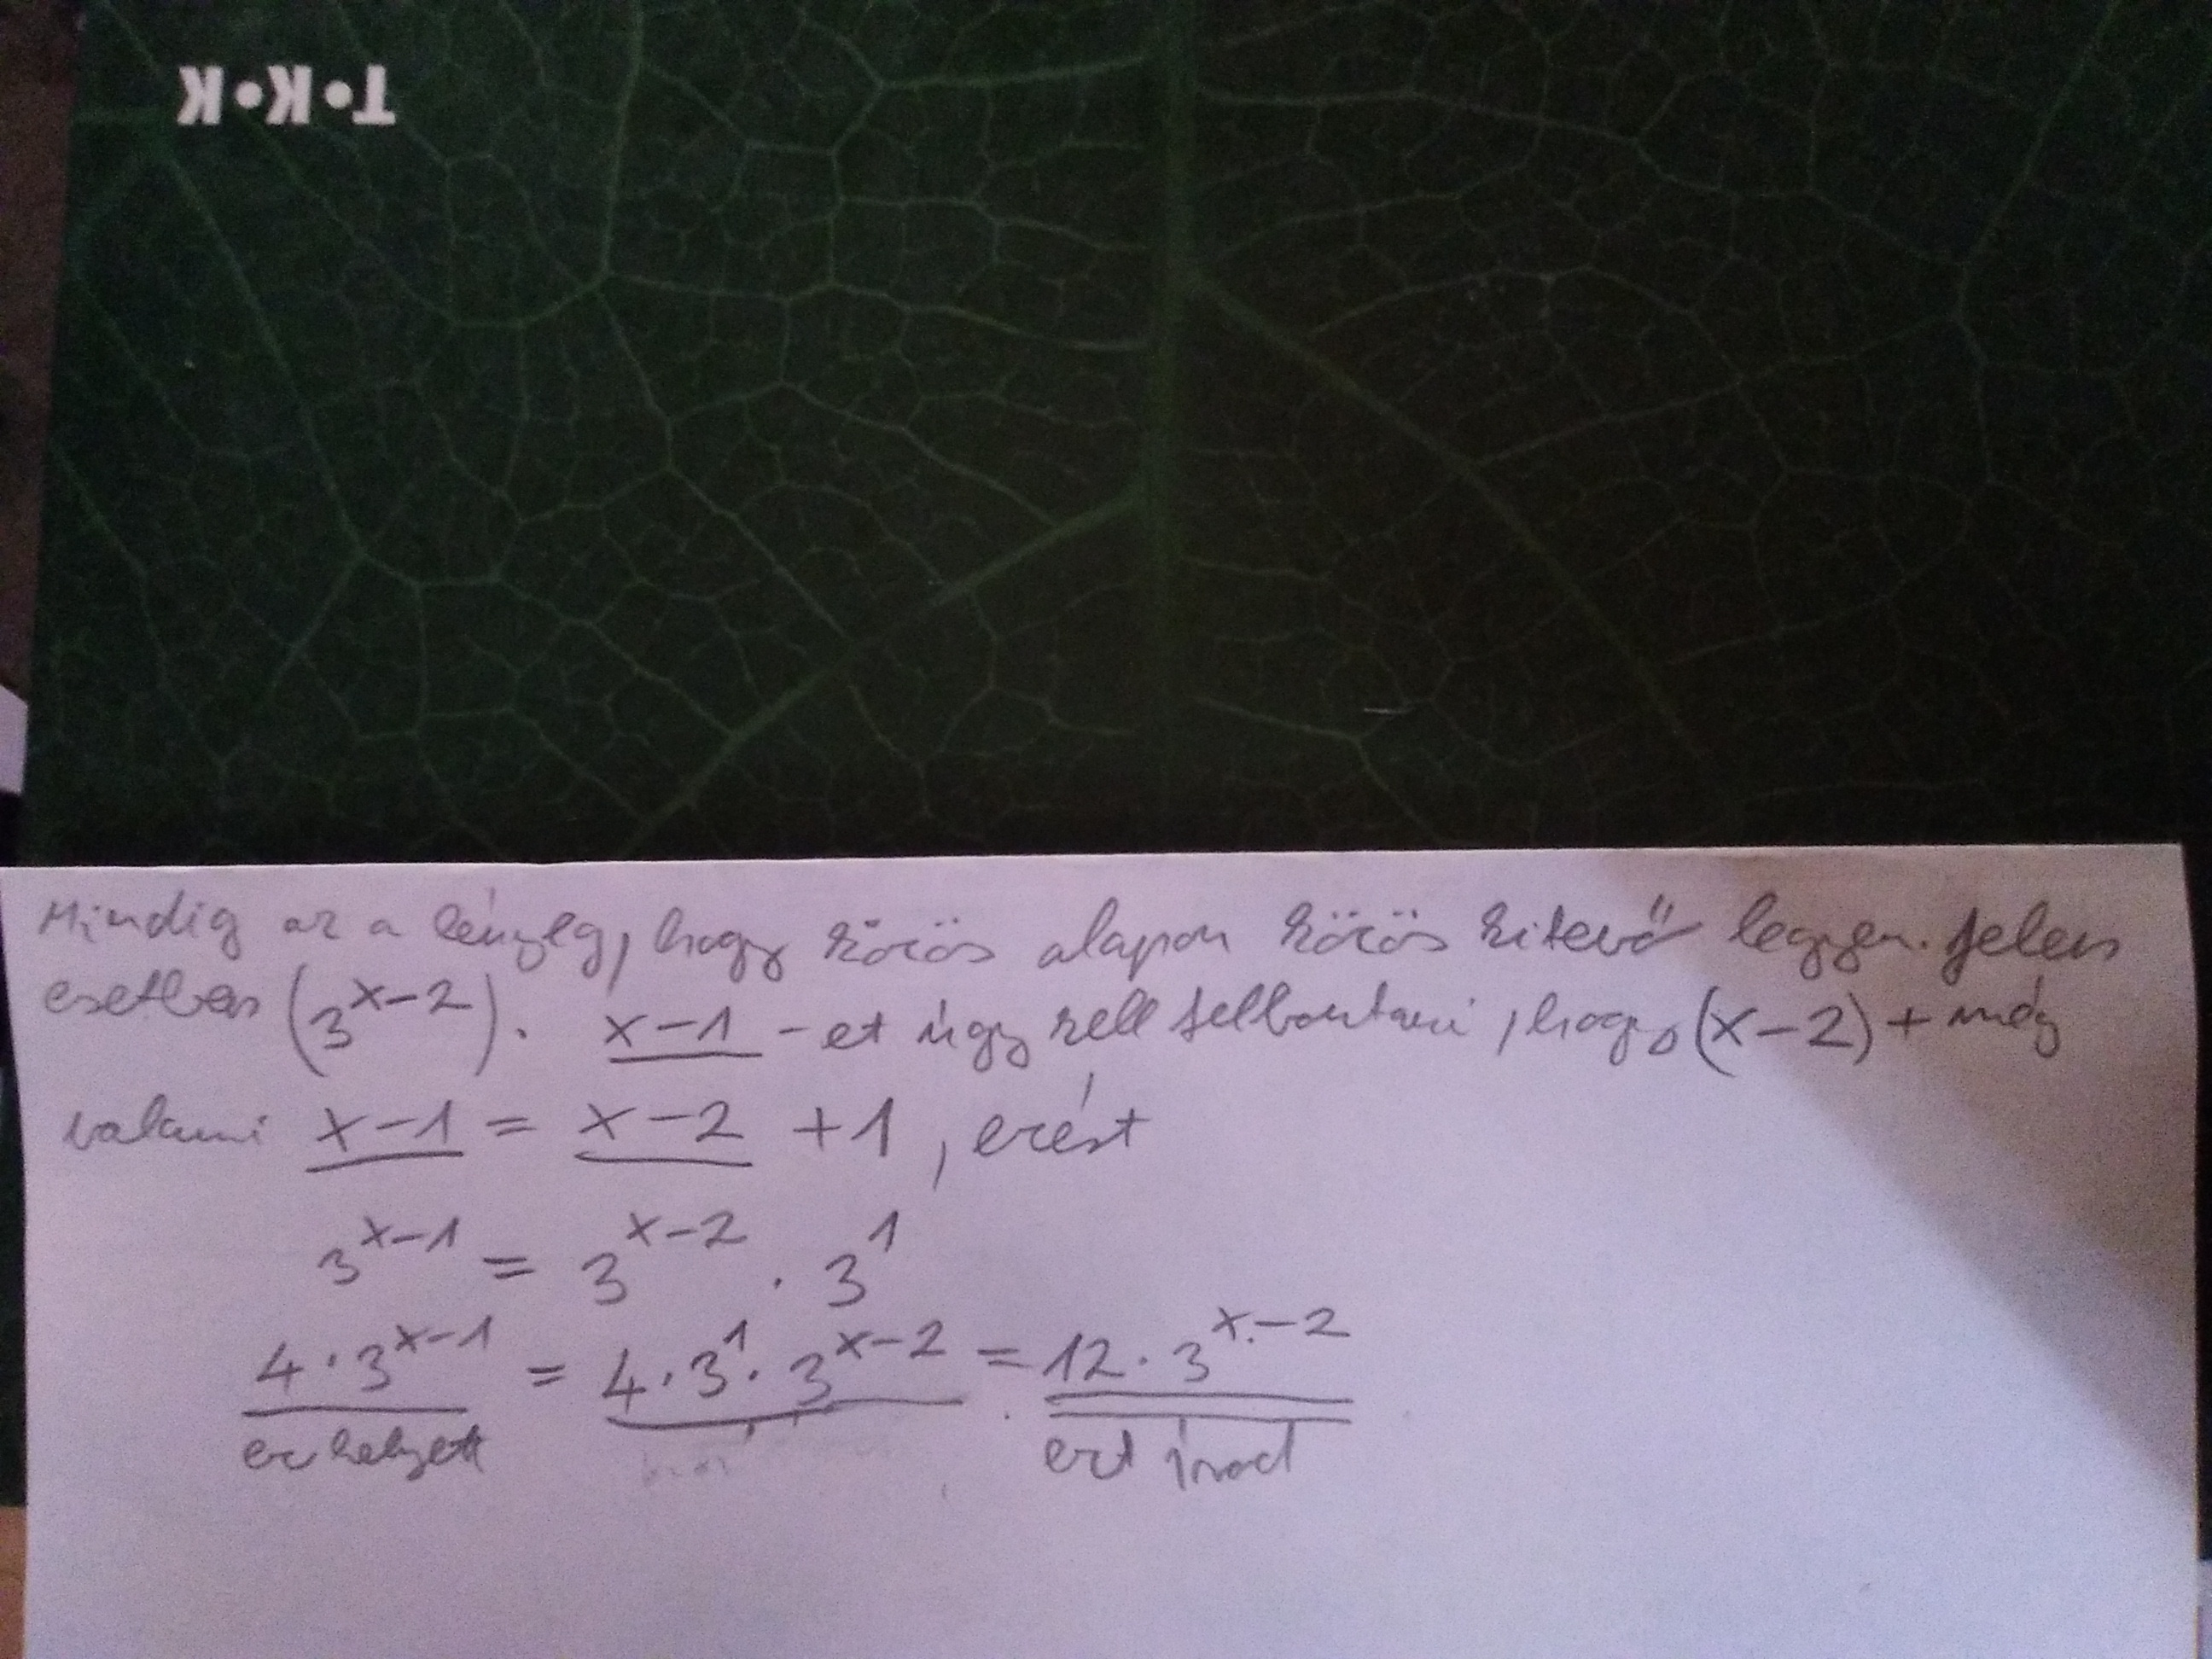 T•K•K
Mindig az a lényeg, hogy közös alapon közös kitevő legyen. Jelen
esetben (3^{x-2}). x-1 -et úgy kell felbontani, hogy (x-2) + még
valami x-1 = x-2 +1, ezért
3^{x-1} = 3^{x-2} · 3^1
4·3^{x-1} = 4·3^1·3^{x-2} = 12·3^{x-2}
ez helyett ezt írod